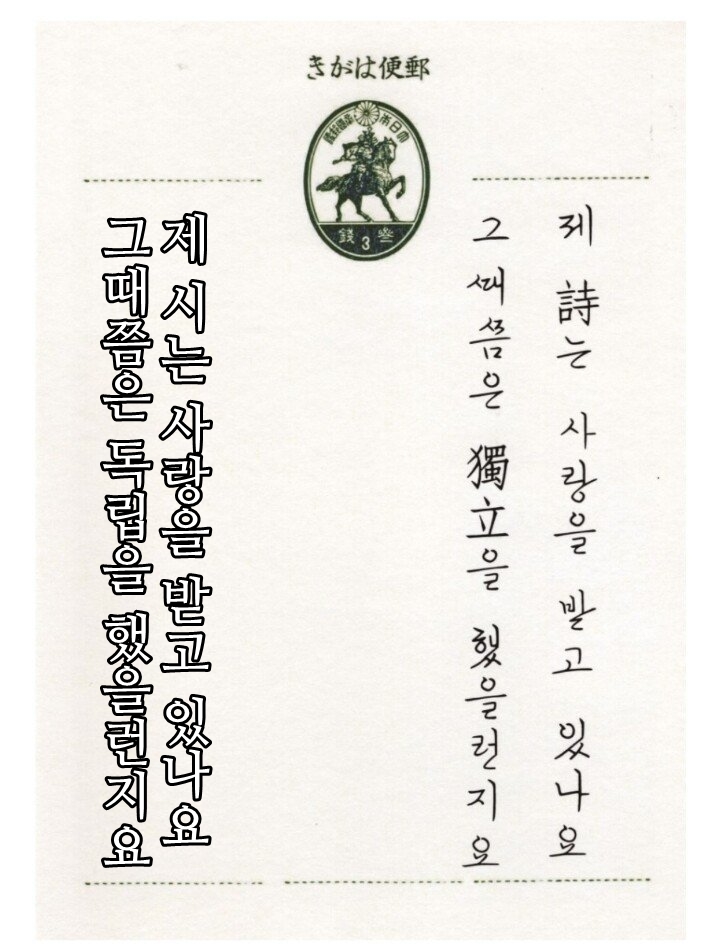 きがは便郵
大日本帝國郵便
参3錢
제 詩는 사랑을 받고 있나요
그 때쯤은 獨立을 했을런지요
제 시는 사랑을 받고 있나요
그 때쯤은 독립을 했을런지요